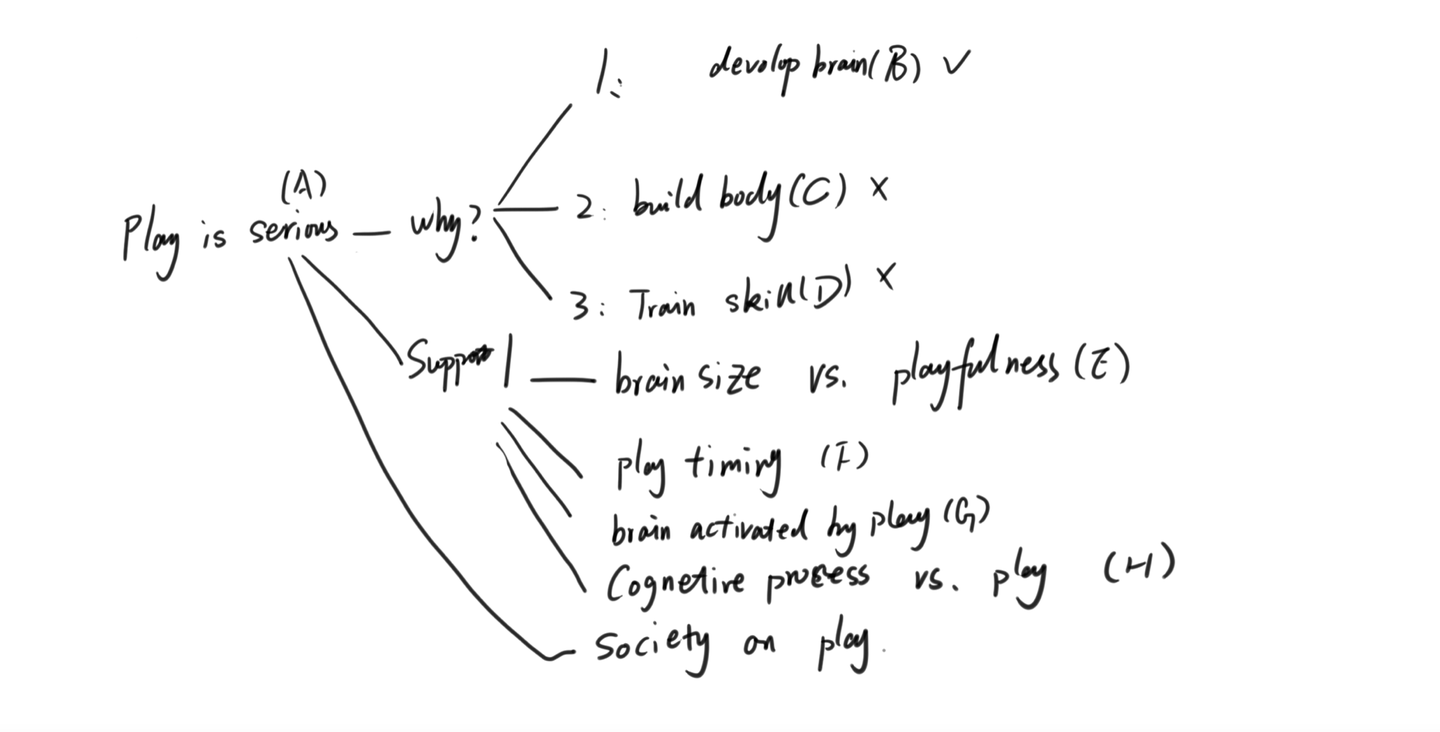 1: develop brain (B) ✓
(A)
Play is serious — why?
2: build body (C) ×
3: Train skill (D) ×
Support 1 — brain size vs. playfulness (E)
play timing (F)
brain activated by play (G)
Cognetive process vs. play (H)
Society on play.